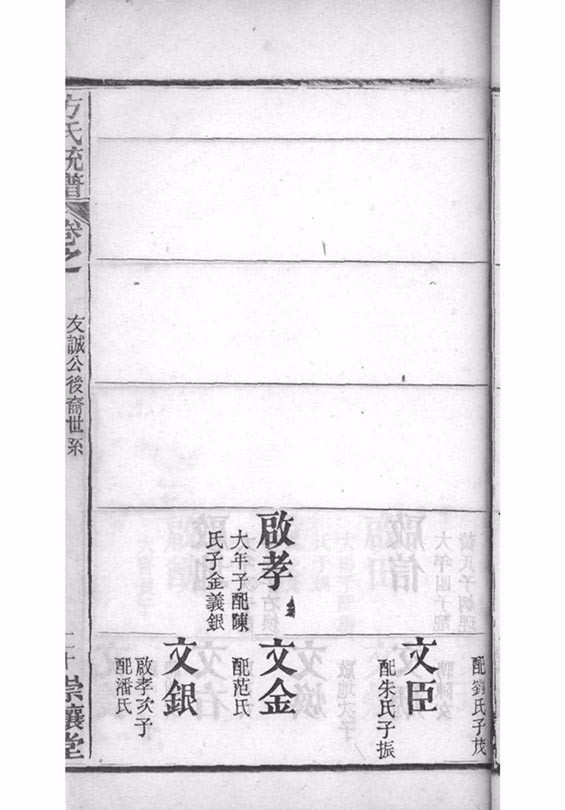 啟孝
大年子配陳
氏子金義銀
配劉氏子茂
文臣
配朱氏子振
文金
配范氏
文銀
啟孝次子
配潘氏
方氏統譜
卷之
友誠公後裔世系
二十
崇讓堂